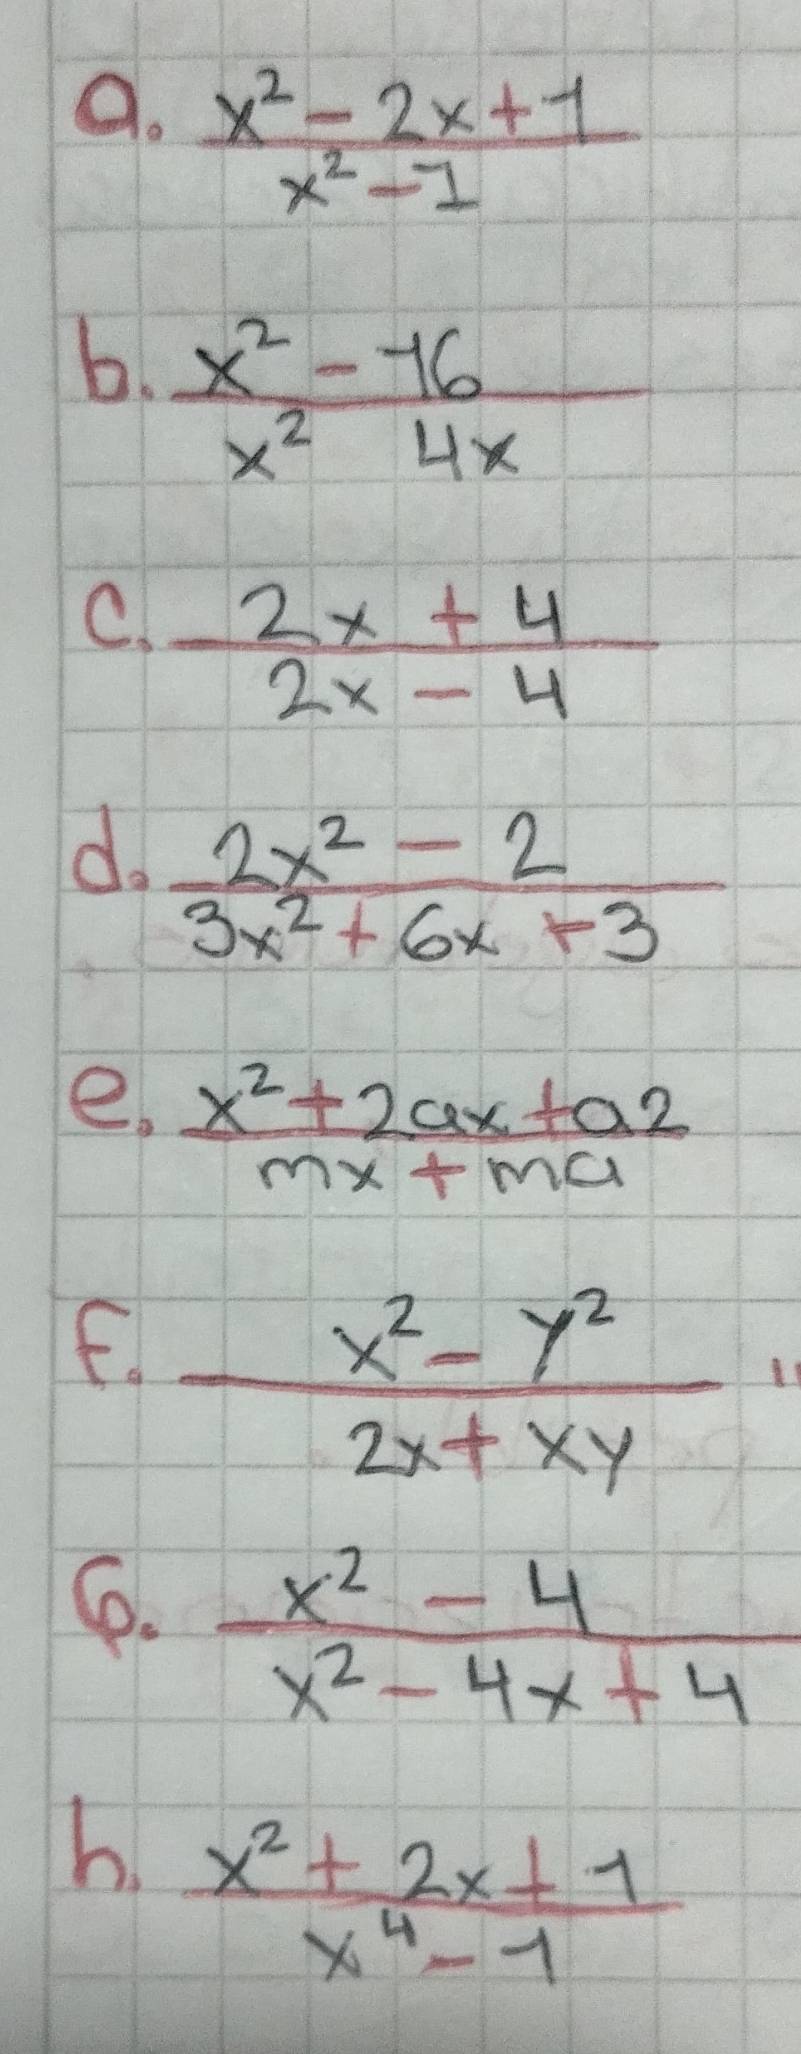 a. x² - 2x + 1
x² - 1
b. x² - 16
x² 4x
c. 2x + 4
2x - 4
d. 2x² - 2
3x² + 6x + 3
e. x² + 2ax + a2
mx + ma
f. x² - y²
2x + xy
G. x² - 4
x² - 4x + 4
h. x² + 2x + 1
x⁴ - 1